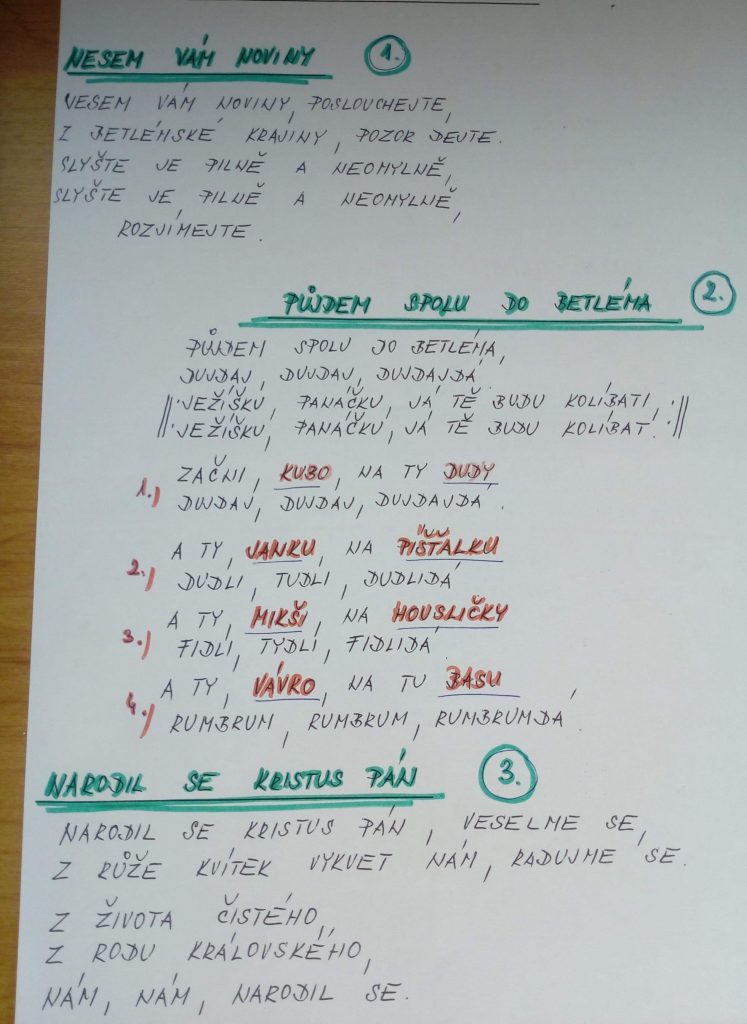 NESEM VÁM NOVINY 1.
NESEM VÁM NOVINY, POSLOUCHEJTE,
Z BETLÉMSKÉ KRAJINY, POZOR DEJTE.
SLYŠTE JE PILNĚ A NEOMYLNĚ,
SLYŠTE JE PILNĚ A NEOMYLNĚ,
ROZJÍMEJTE.
PŮJDEM SPOLU DO BETLÉMA 2.
PŮJDEM SPOLU DO BETLÉMA,
DUJDAJ, DUJDAJ, DUJDAJDÁ.
‖: JEŽÍŠKU, PANÁČKU, JÁ TĚ BUDU KOLÍBATI,
JEŽÍŠKU, PANÁČKU, JÁ TĚ BUDU KOLÍBAT. :‖
1.) ZAČNI, KUBO, NA TY DUDY
DUJDAJ, DUJDAJ, DUJDAJDÁ.
2.) A TY, JANKU, NA PÍŠŤALKU
DUDLI, TUDLI, DUDLIDÁ
3.) A TY, MIKŠI, NA HOUSLIČKY
FIDLI, TYDLI, FIDLIDÁ
4.) A TY, VÁVRO, NA TU BASU
RUMBRUM, RUMBRUM, RUMBRUMDÁ
NARODIL SE KRISTUS PÁN 3.
NARODIL SE KRISTUS PÁN, VESELME SE,
Z RŮŽE KVÍTEK VYKVET NÁM, RADUJME SE.
Z ŽIVOTA ČISTÉHO,
Z RODU KRÁLOVSKÉHO,
NÁM, NÁM, NARODIL SE.